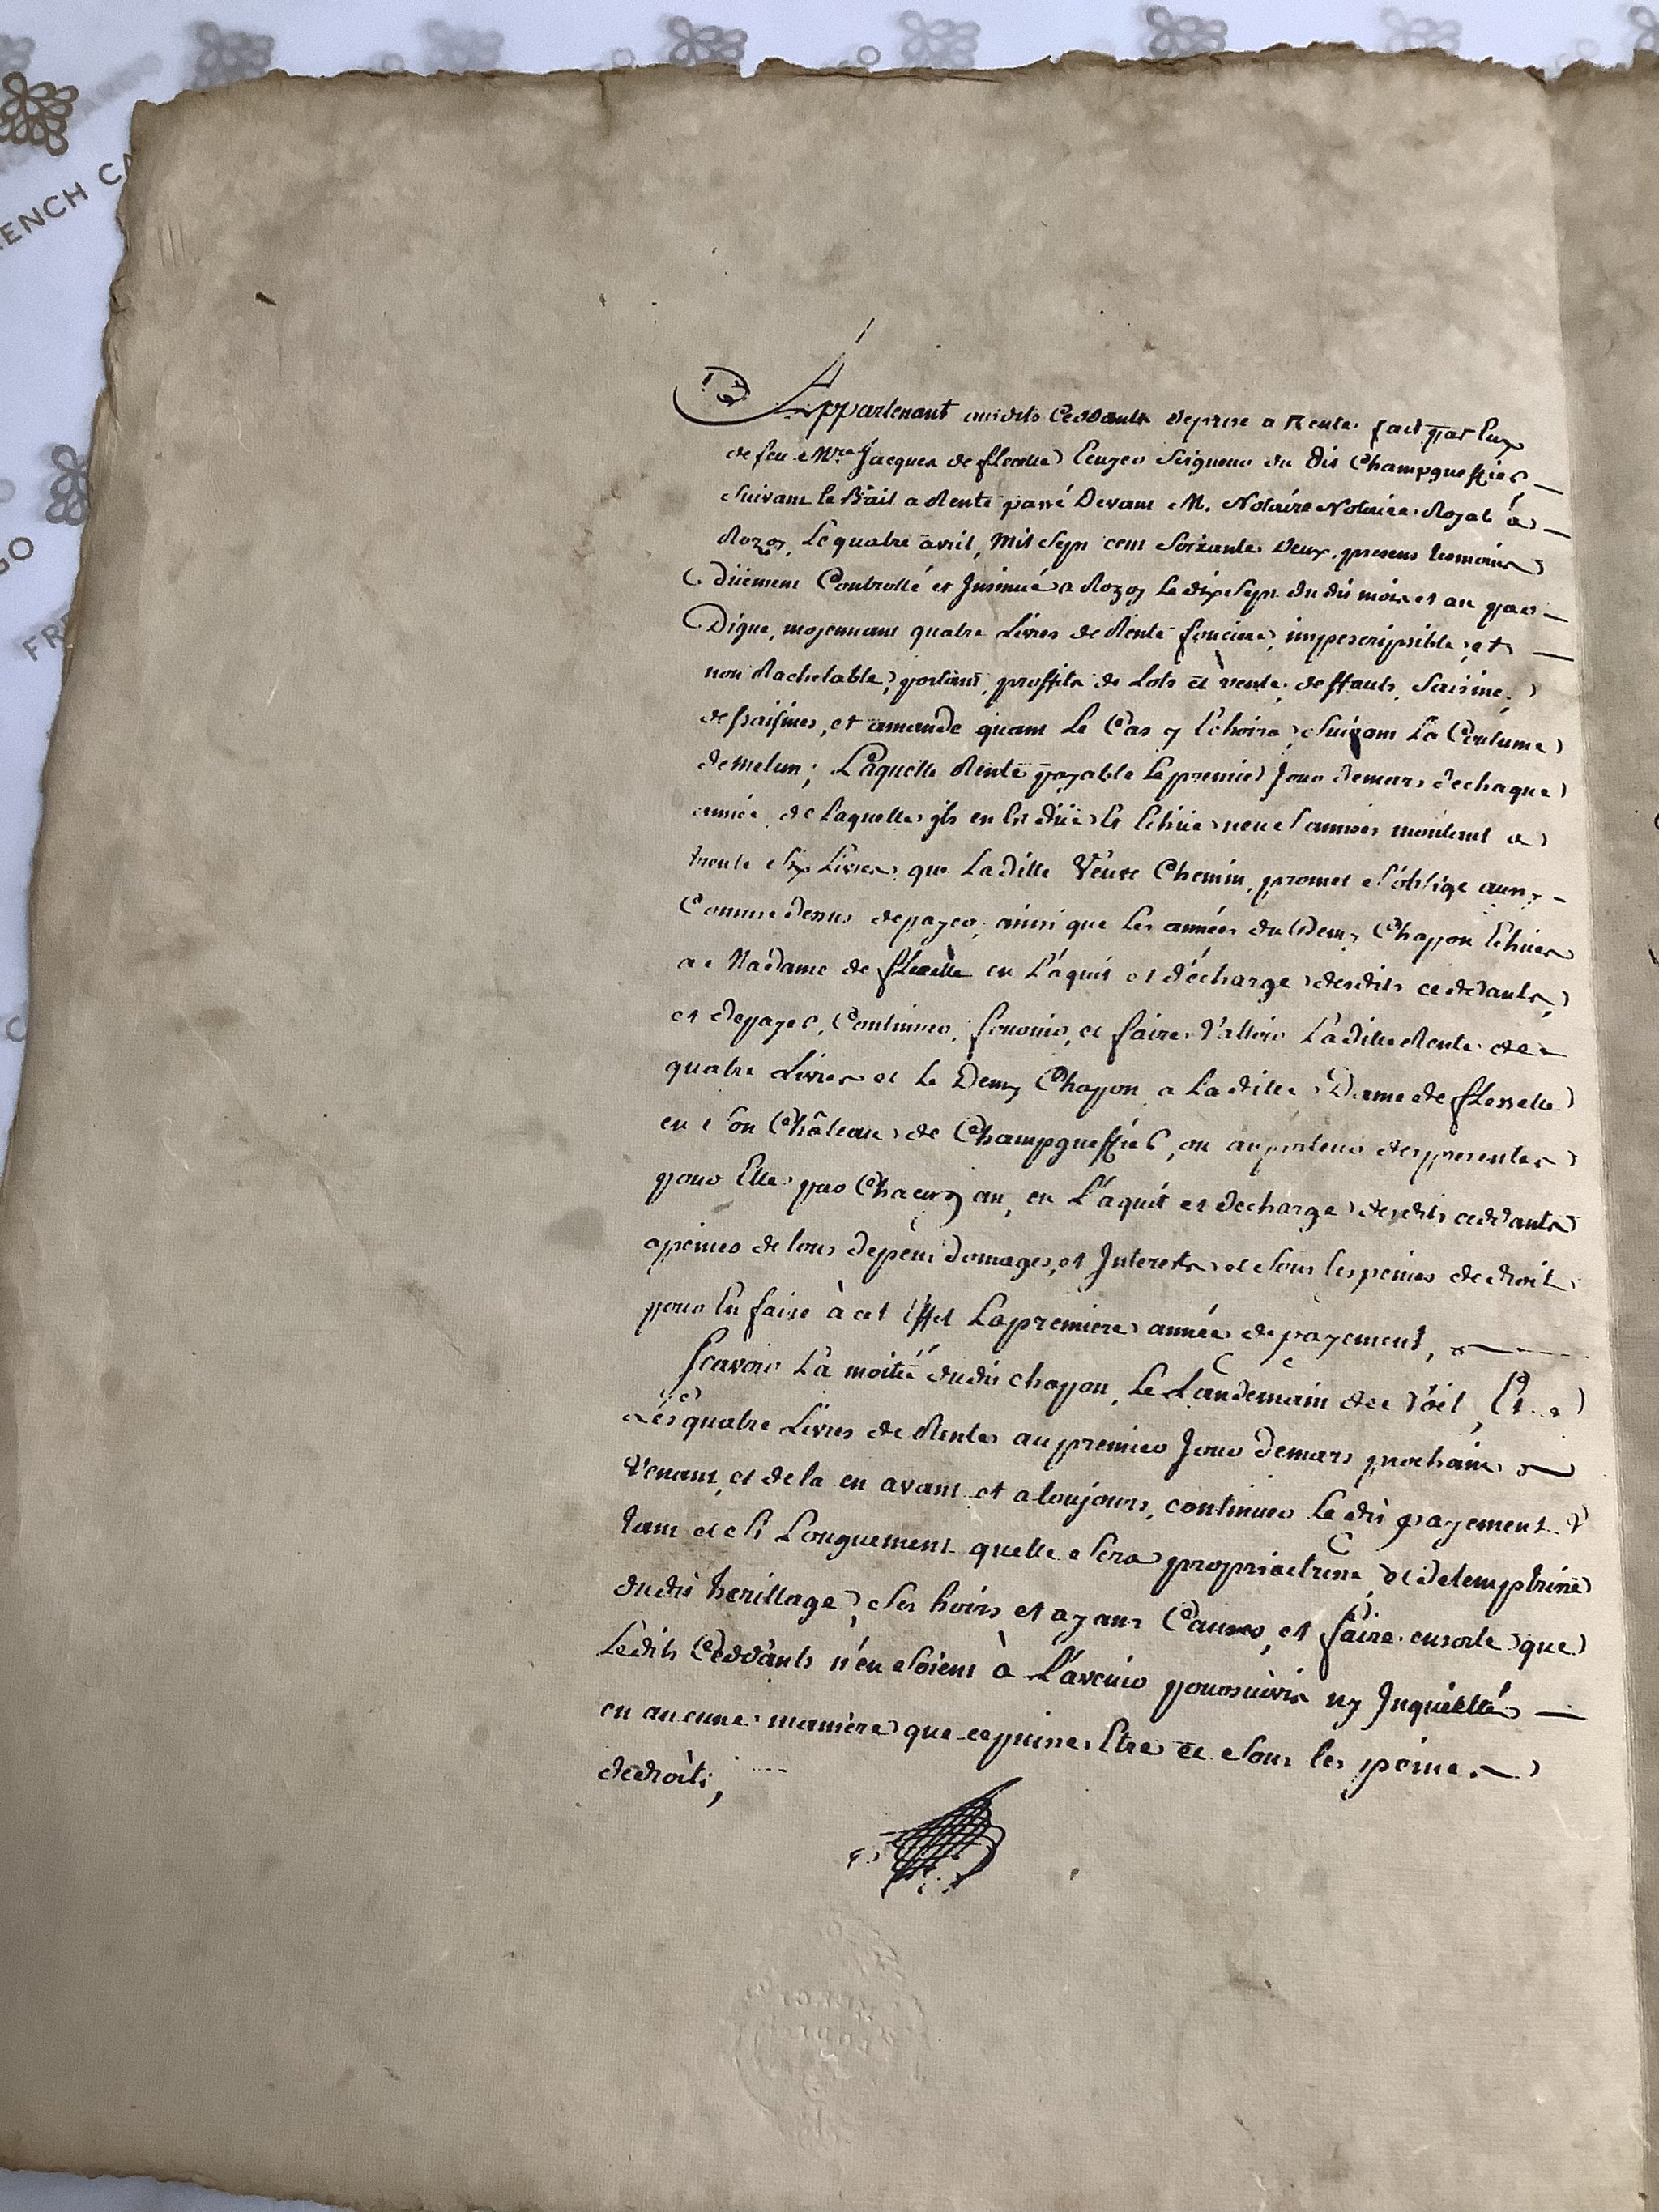 FRENCH CA
GO
FRE
Appartenant ausdits Ceddants de prise a Rente fait par Eux
de feu Mre Jacques de flecelle Ecuyer Seigneur du dit Champgueffier
Suivant le Bail a Rente passé Devant M. Notaire Notaire Royal à
Rozoy, Le quatre avril, Mil Sept cent Soixante Deux, presens temoins
Düement Controllé et Insinué a Rozoy Le dix Sept du dit mois et an par
Digue, moyennant quatre Livres de Rente fonciere, imperscripsible, et
non Rachetable, portant, proffits de Lots et vente, deffauts, Saisine,
dessaisines, et amande quant Le Cas y Echoira, Suivant La Coutume
de melun; Laquelle Rente payable Le premier Jour de mars de chaque
année, de Laquelle il en Est düe et Echüe neuf années montant a
trente Six Livres, que Laditte Veuve Chemin, promet S'oblige aussy
Comme dessus de payer, ainsi que Les années du Demy Chappon Echues
a Madame de flecelle en L'aquit et décharge desdits ceddants,
et de payer, Continuer, fournir, et faire Valloir Laditte Rente de
quatre Livres et Le Demy Chappon a Laditte Dame de flesselle
en Son Château de Champgueffier, ou au porteur des presentes
pour Elle par Chacun an, en L'aquit et decharge desdits ceddants
a peines de tous depens Domages, et Interets et Sous les peines de droit
pour En faire à cet Effet La premiere année de payement,
Scavoir La moitié dudit chappon, Le Landemain de Noël, Et
Les quatre Livres de Rentes au premier Jour de mars prochain
Venant, et de la en avant et a toujours, continuer Le dit payement
tant et Si Longuement quelle Sera proprietrisse, et detemptrisse
dudit herittage, Ses hoirs et ayans Causes, et faire ensorte que
Lesdits Ceddants n'en Soient à L'avenir poursuivis ny Inquiettés
en aucune maniere que ce puisse Etre et Sous les peines
de droits;